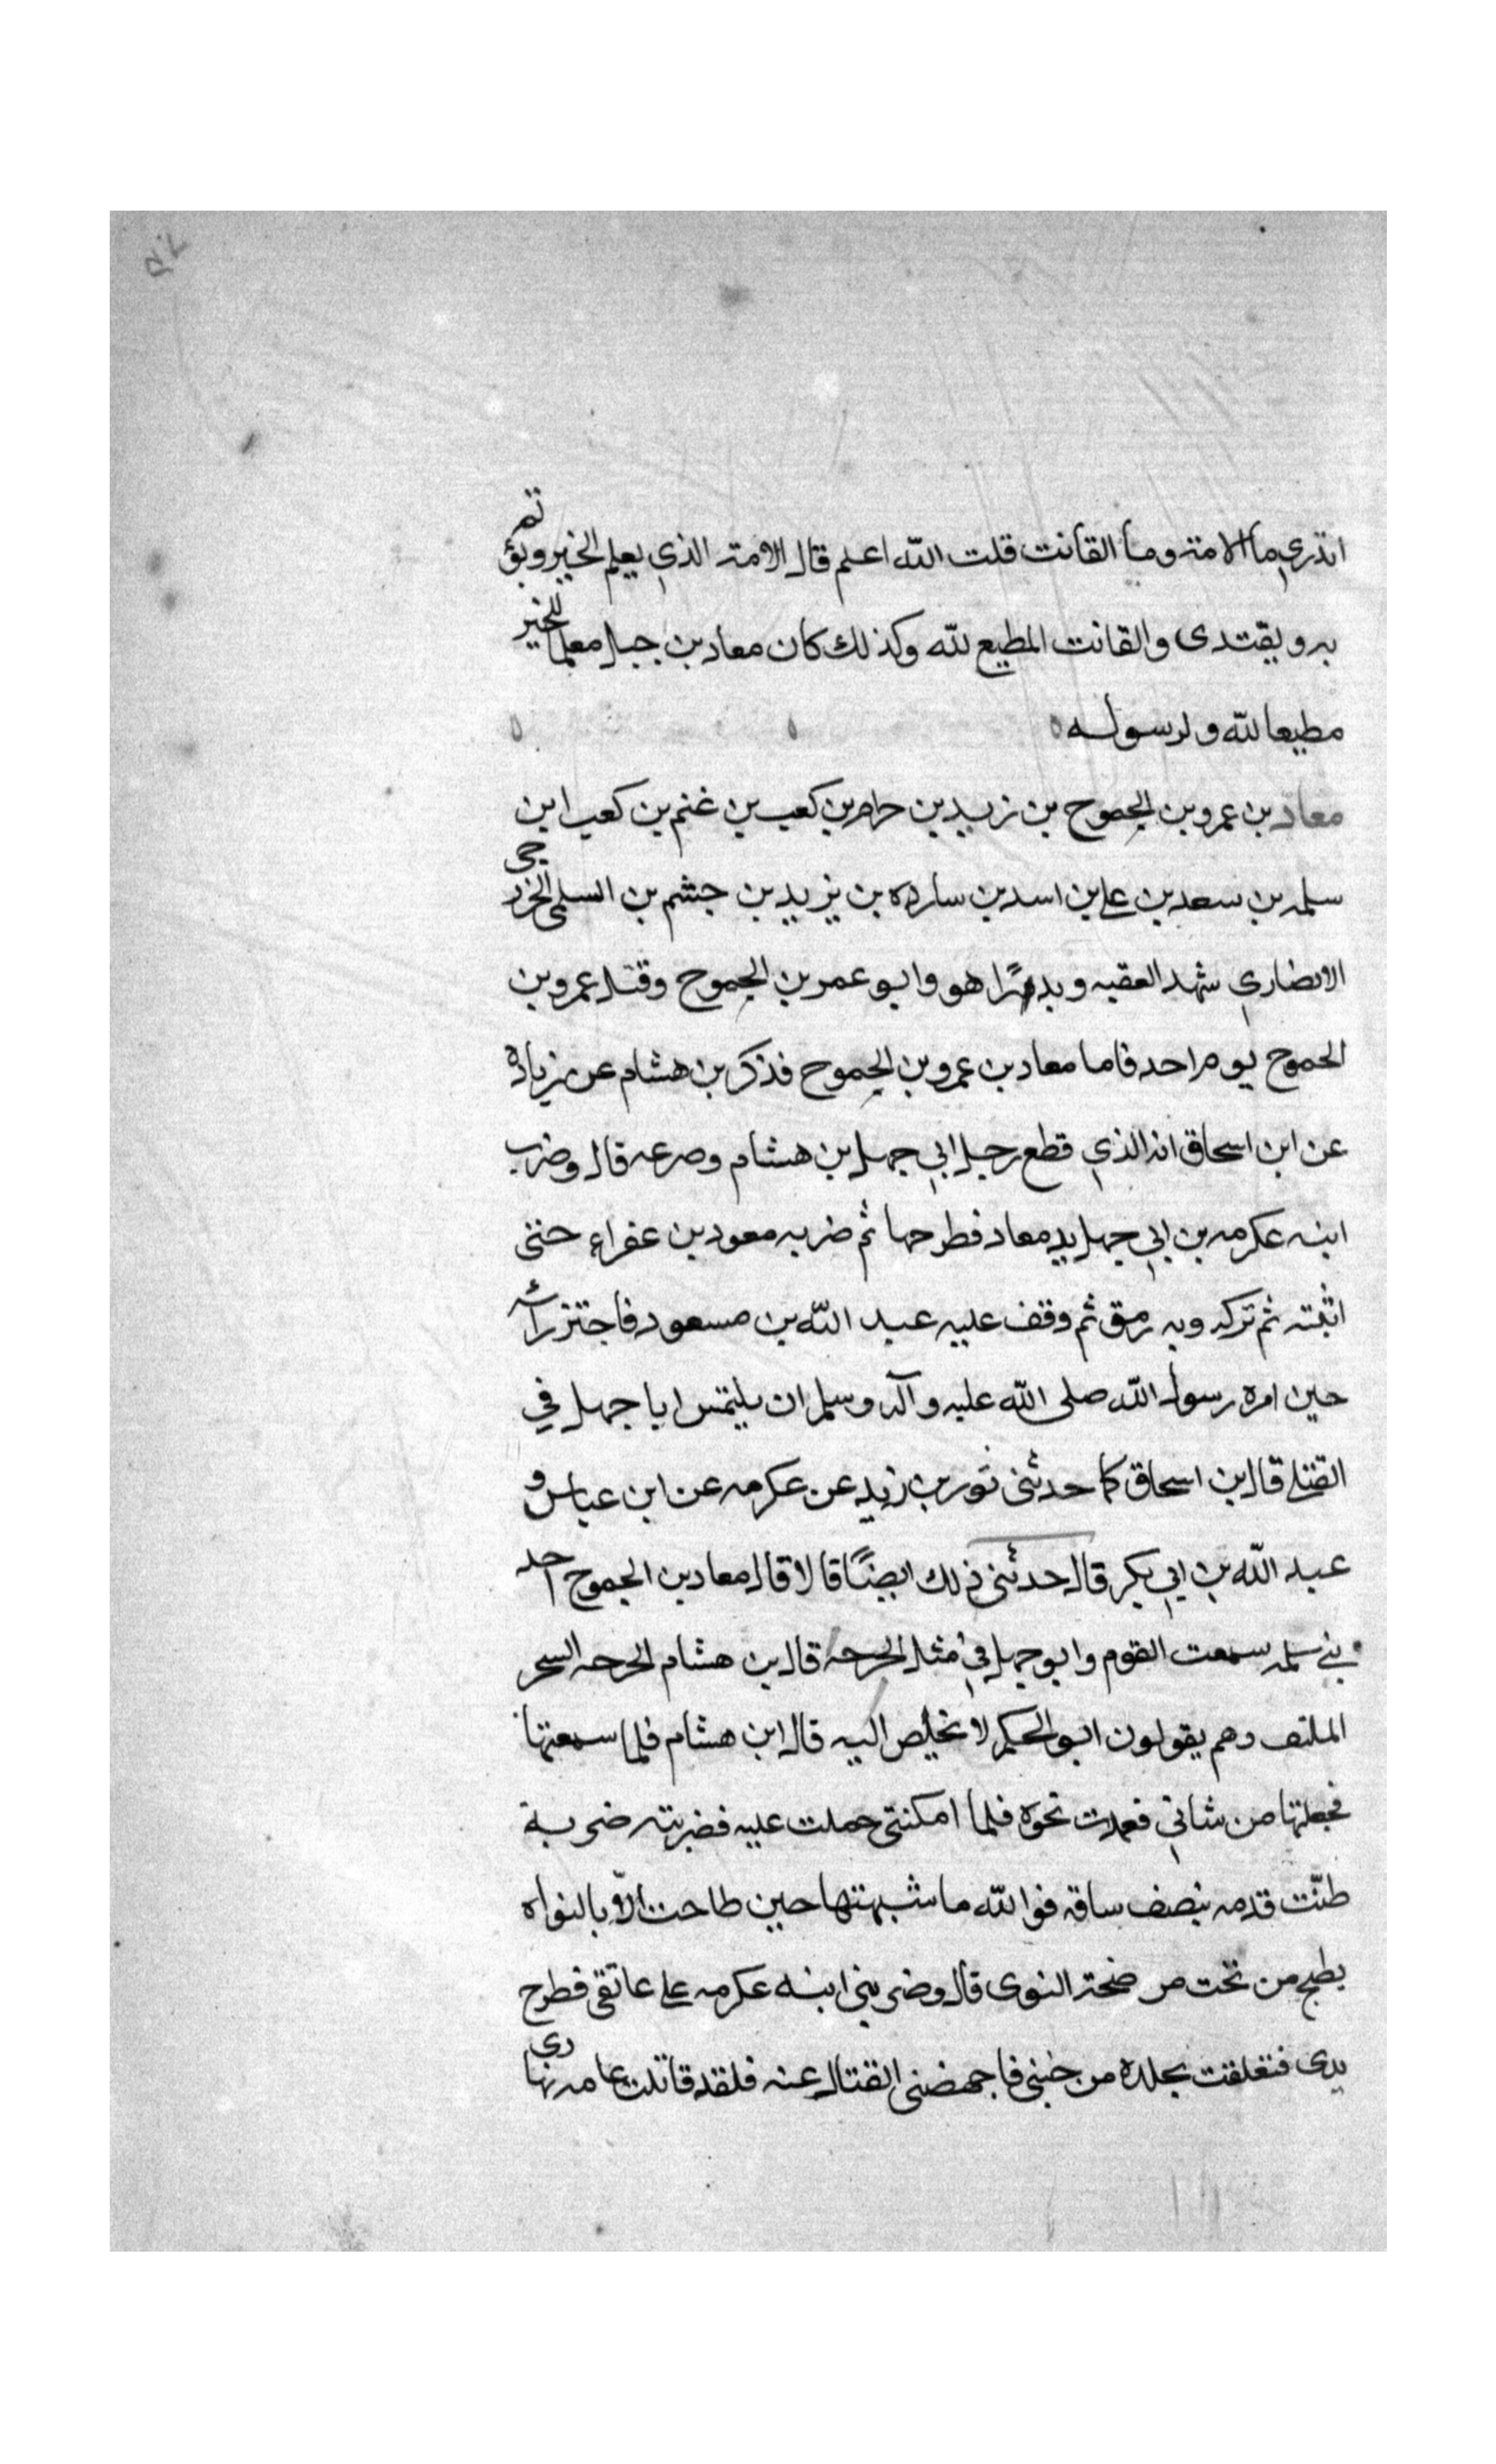 اتدري ما الامة وما القانت قلت الله اعلم قال الامة الذي يعلم الخير ويؤتم
به ويقتدى والقانت المطيع لله وكذلك كان معاد بن جبل معلما للخير
مطيعا لله ولرسوله
معاد بن عمرو بن الجموح بن زيد بن حرام بن كعب بن غنم بن كعب ابن
سلمه بن سعد بن علي بن اسد بن سارده بن يزيد بن جشم بن السلمى الخزرجى
الانصاري شهد العقبه وبدرًا هو وابو عمر بن الجموح وقتل عمرو بن
الجموح يوم احد فاما معاد بن عمرو بن الجموح فذكر بن هشام عن زياد
عن ابن اسحاق انه الذي قطع رجل ابي جهل بن هشام وصرعه قال وضرب
ابنه عكرمه بن ابي جهل يد معاد فطرحها ثم ضربه معود بن عفراء حتى
اثبته ثم تركه وبه رمق ثم وقف عليه عبد الله بن مسعود فاجتز رأسه
حين امره رسول الله صلى الله عليه وآله وسلم ان يلتمس ابا جهل في
القتلى قال ابن اسحاق كما حدثنى ثور بن زيد عن عكرمه عن ابن عباس و
عبد الله بن ابي بكر قال حدثنى ذلك ايضًا قالا قال معاد بن الجموح احد
بني سلمه سمعت القوم وابو جهل في مثل الحرجه قال بن هشام الحرحه السحر
الملتف وهم يقولون ابو الحكم لا تخلص اليه قال ابن هشام فلما سمعتها
فجعلتها من شاني فعمدت نحوه فلما امكنتى حملت عليه فضربته ضربة
طنّت قدمه بنصف ساقه فوالله ما شبهتها حين طاحت الّا بالنواه
يطيح من تحت مرضحة النوى قال وضربني ابنه عكرمه على عاتقى فطرح
يدى فتعلقت بجلده من جنبي فاجهضنى القتال عنه فلقد قاتلت عامه نهارى